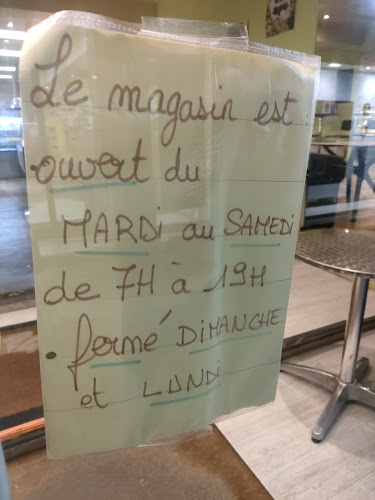 Le magasin est :
• ouvert du
MARDi au SAMEDi
de 7H à 19H
• fermé DiMANCHE
et LUNDi